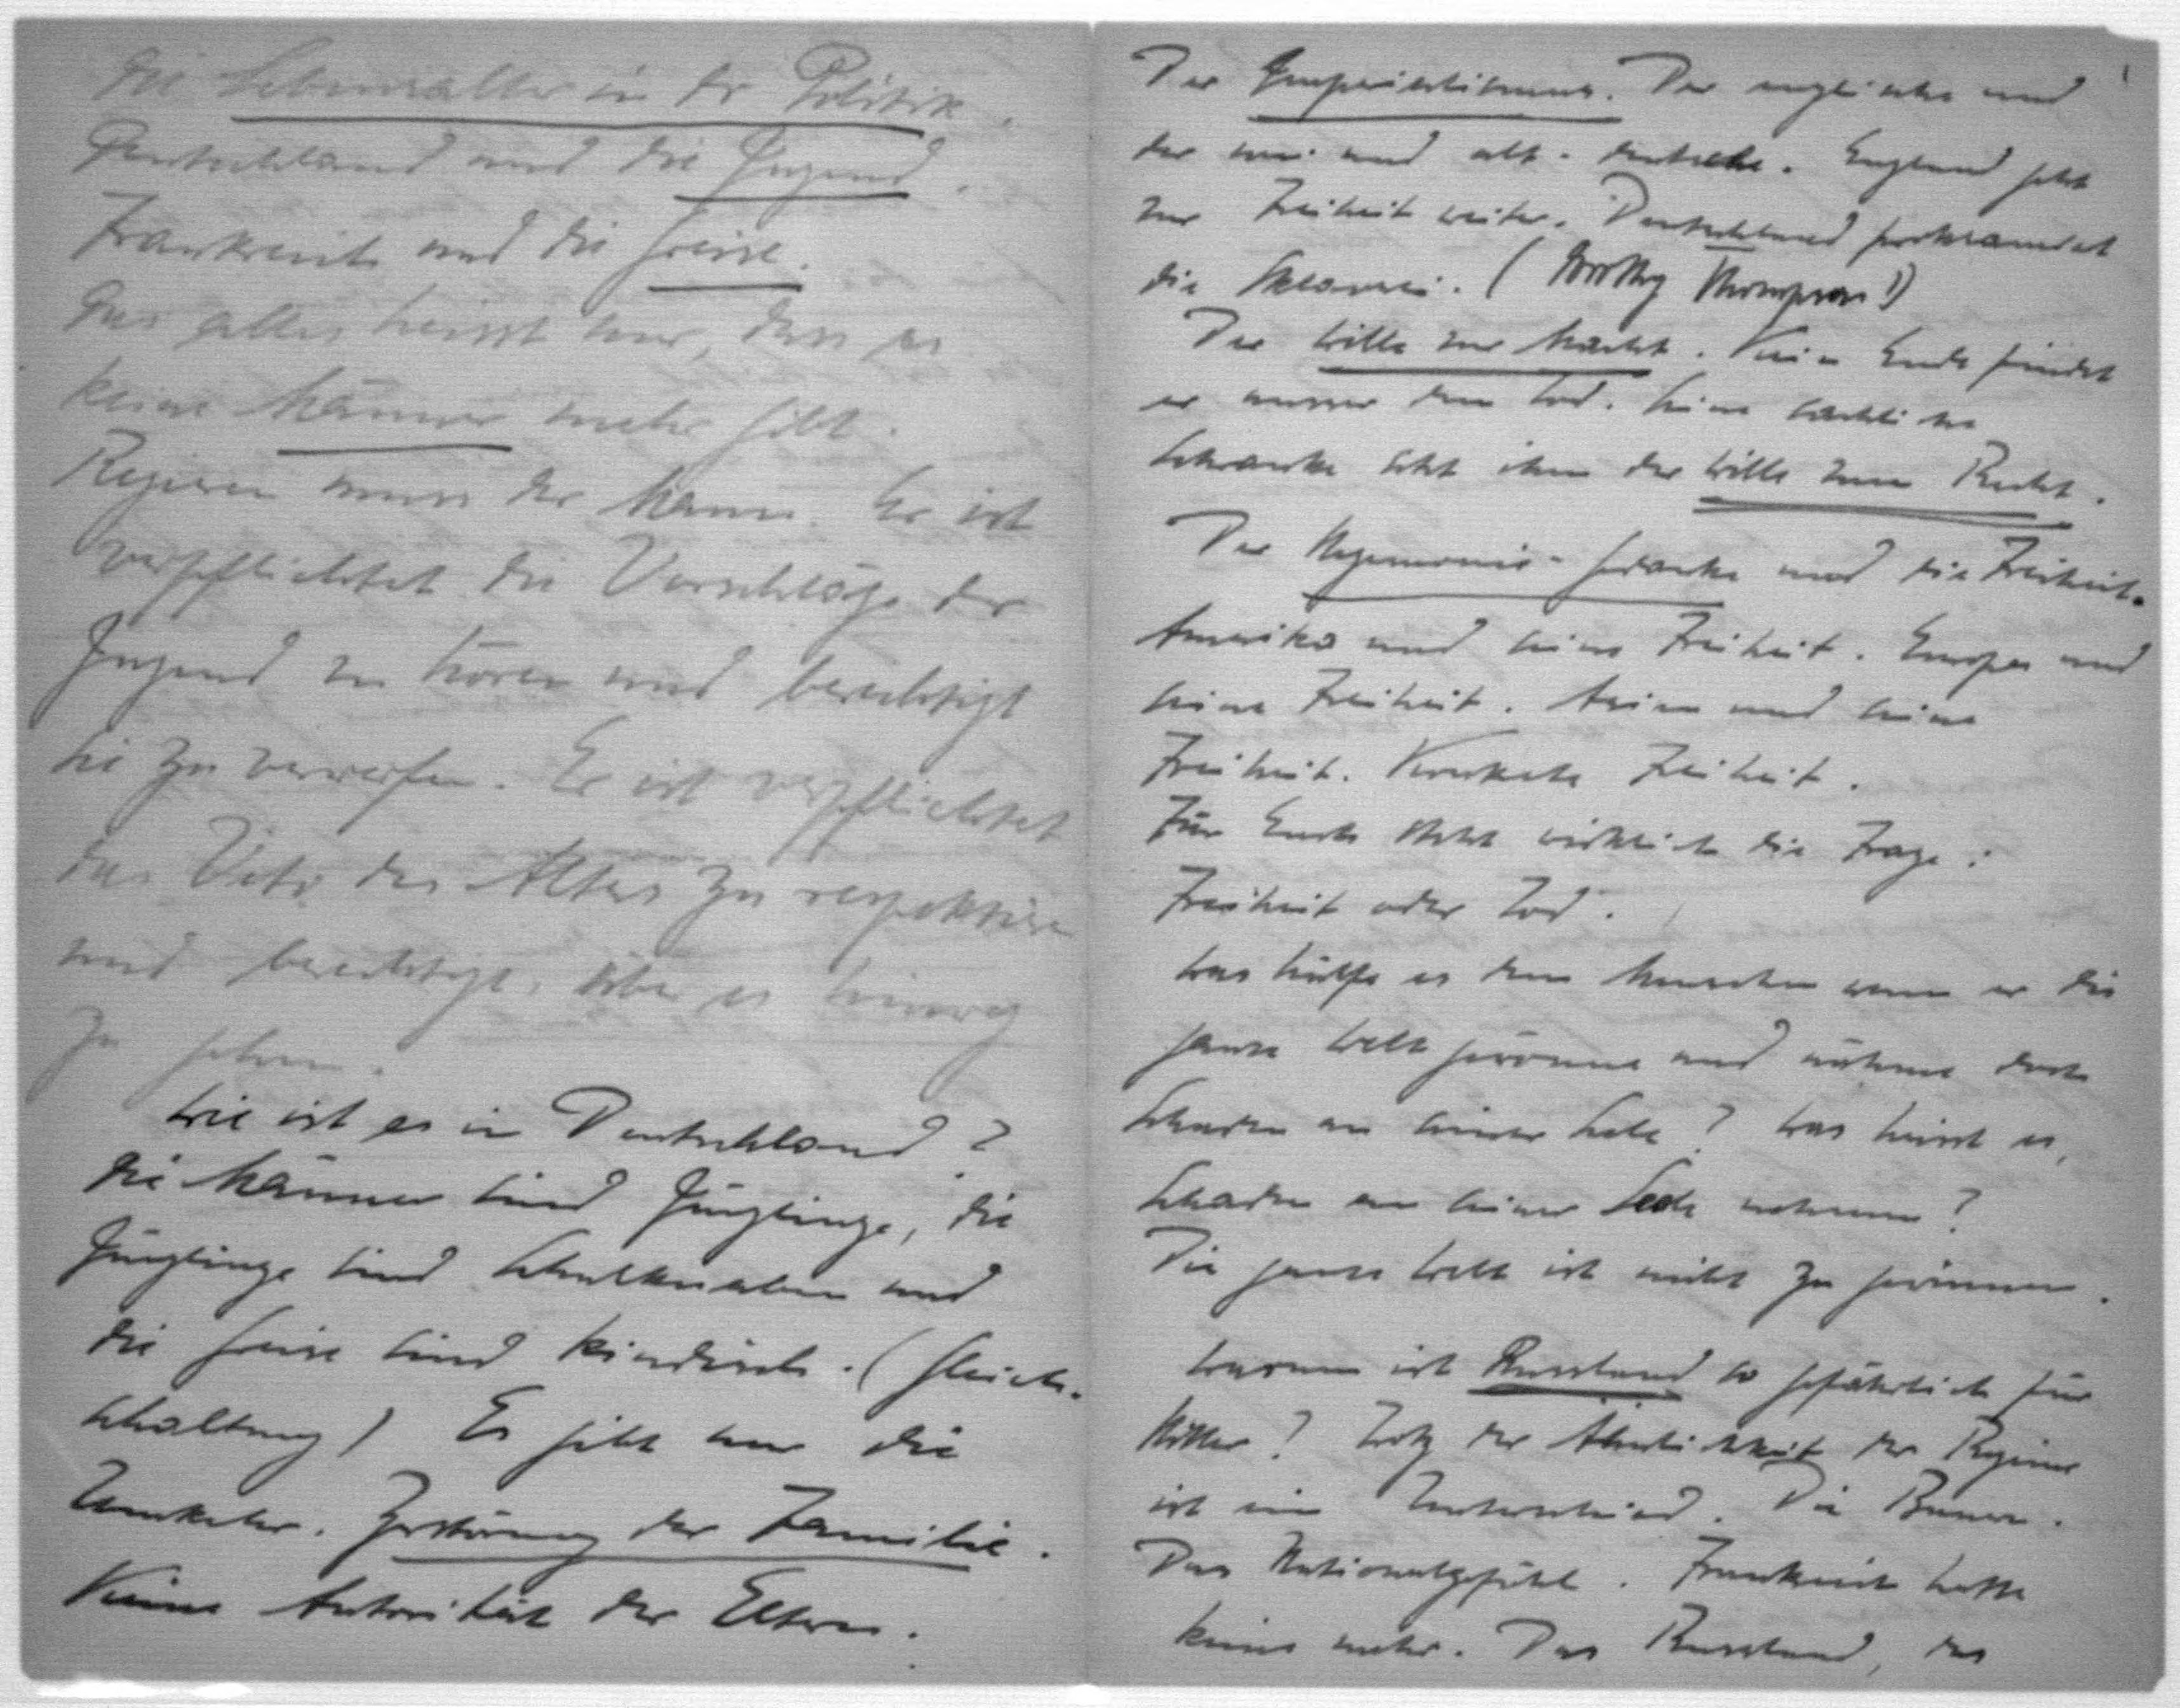 Die Lebensalter in der Politik.
Deutschland und die Jugend.
Frankreich und die Greise.
Das alles heisst nur, dass es
keine Männer mehr gibt.
Regieren muss der Mann. Er ist
verpflichtet die Vorschläge der
Jugend zu hören und berechtigt
sie zu verwerfen. Er ist verpflichtet
das Veto des Alters zu respektieren
und berechtigt, über es hinweg
zu gehen.
Wie ist es in Deutschland?
Die Männer sind Jünglinge, die
Jünglinge sind Schulknaben und
die Greise sind kindisch. (Gleich-
schaltung) Es gibt nur die
Umkehr. Zerstörung der Familie.
Keine Autorität der Eltern.
Der Imperialismus. Der englische und
der neu- und alt-deutsche. England geht
zur Freiheit weiter. Deutschland proklamiert
die Sklaverei. (Dorothy Thompson!)
Der Wille zur Macht. Kein Ende findet
er ausser dem Tod. Seine
Schranke setzt ihm der Wille zum Recht.
Der Hegemonie-Gedanke und die Freiheit.
Amerika und seine Freiheit. Europa und
seine Freiheit. Asien und seine
Freiheit. Verkehrte Freiheit.
Für Euch steht wirklich die Frage:
Freiheit oder Tod.
Was hülfe es dem Menschen wenn er die
ganze Welt gewönne und nähme doch
Schaden an seiner Seele? Was heisst es,
Schaden an seiner Seele nehmen?
Die ganze Welt ist nicht zu gewinnen.
Warum ist Russland so gefährlich für
Hitler? Trotz der Ähnlichkeit der Regime
ist ein Unterschied. Die Bauern.
Das Nationalgefühl. Frankreich hatte
keines mehr. Das Russland, das